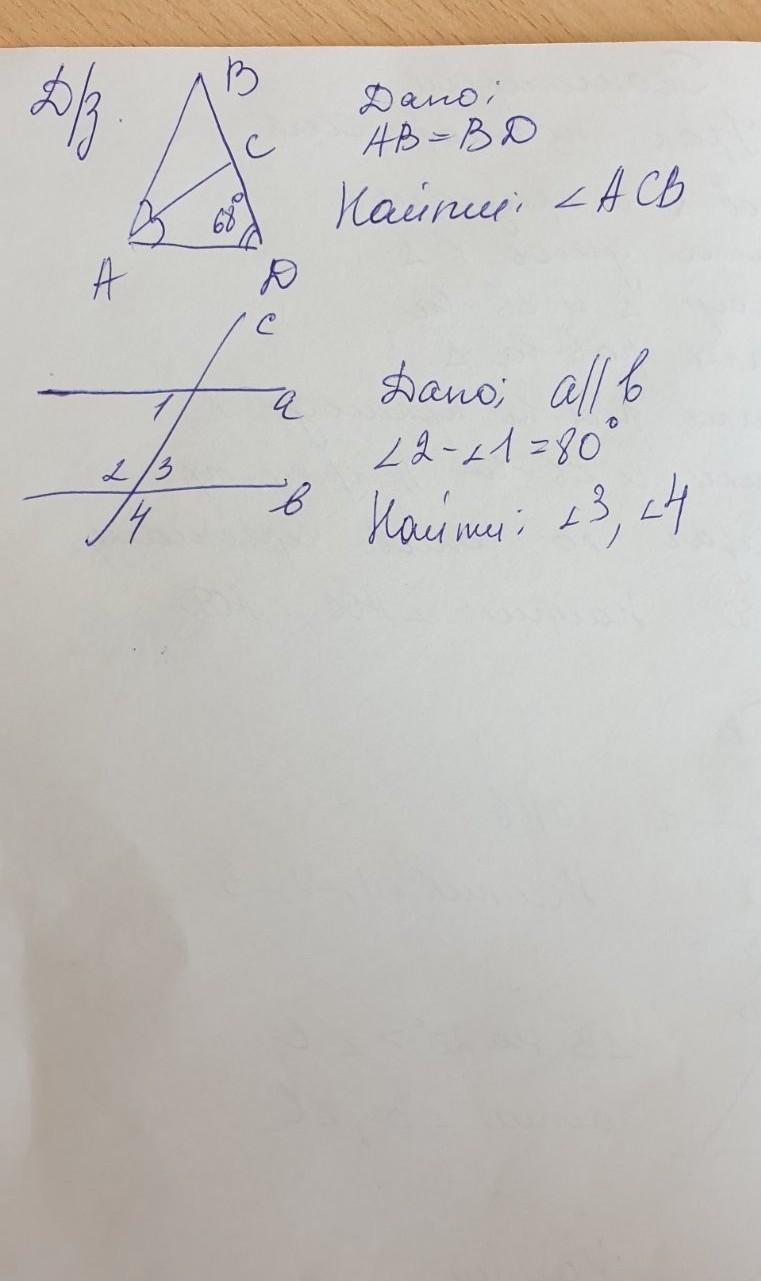 Д/з.
B
C
68°
A
D
Дано:
AB = BD
Найти: ∠ACB
c
1
a
2 3
4
b
Дано: a || b
∠2 - ∠1 = 80°
Найти: ∠3, ∠4